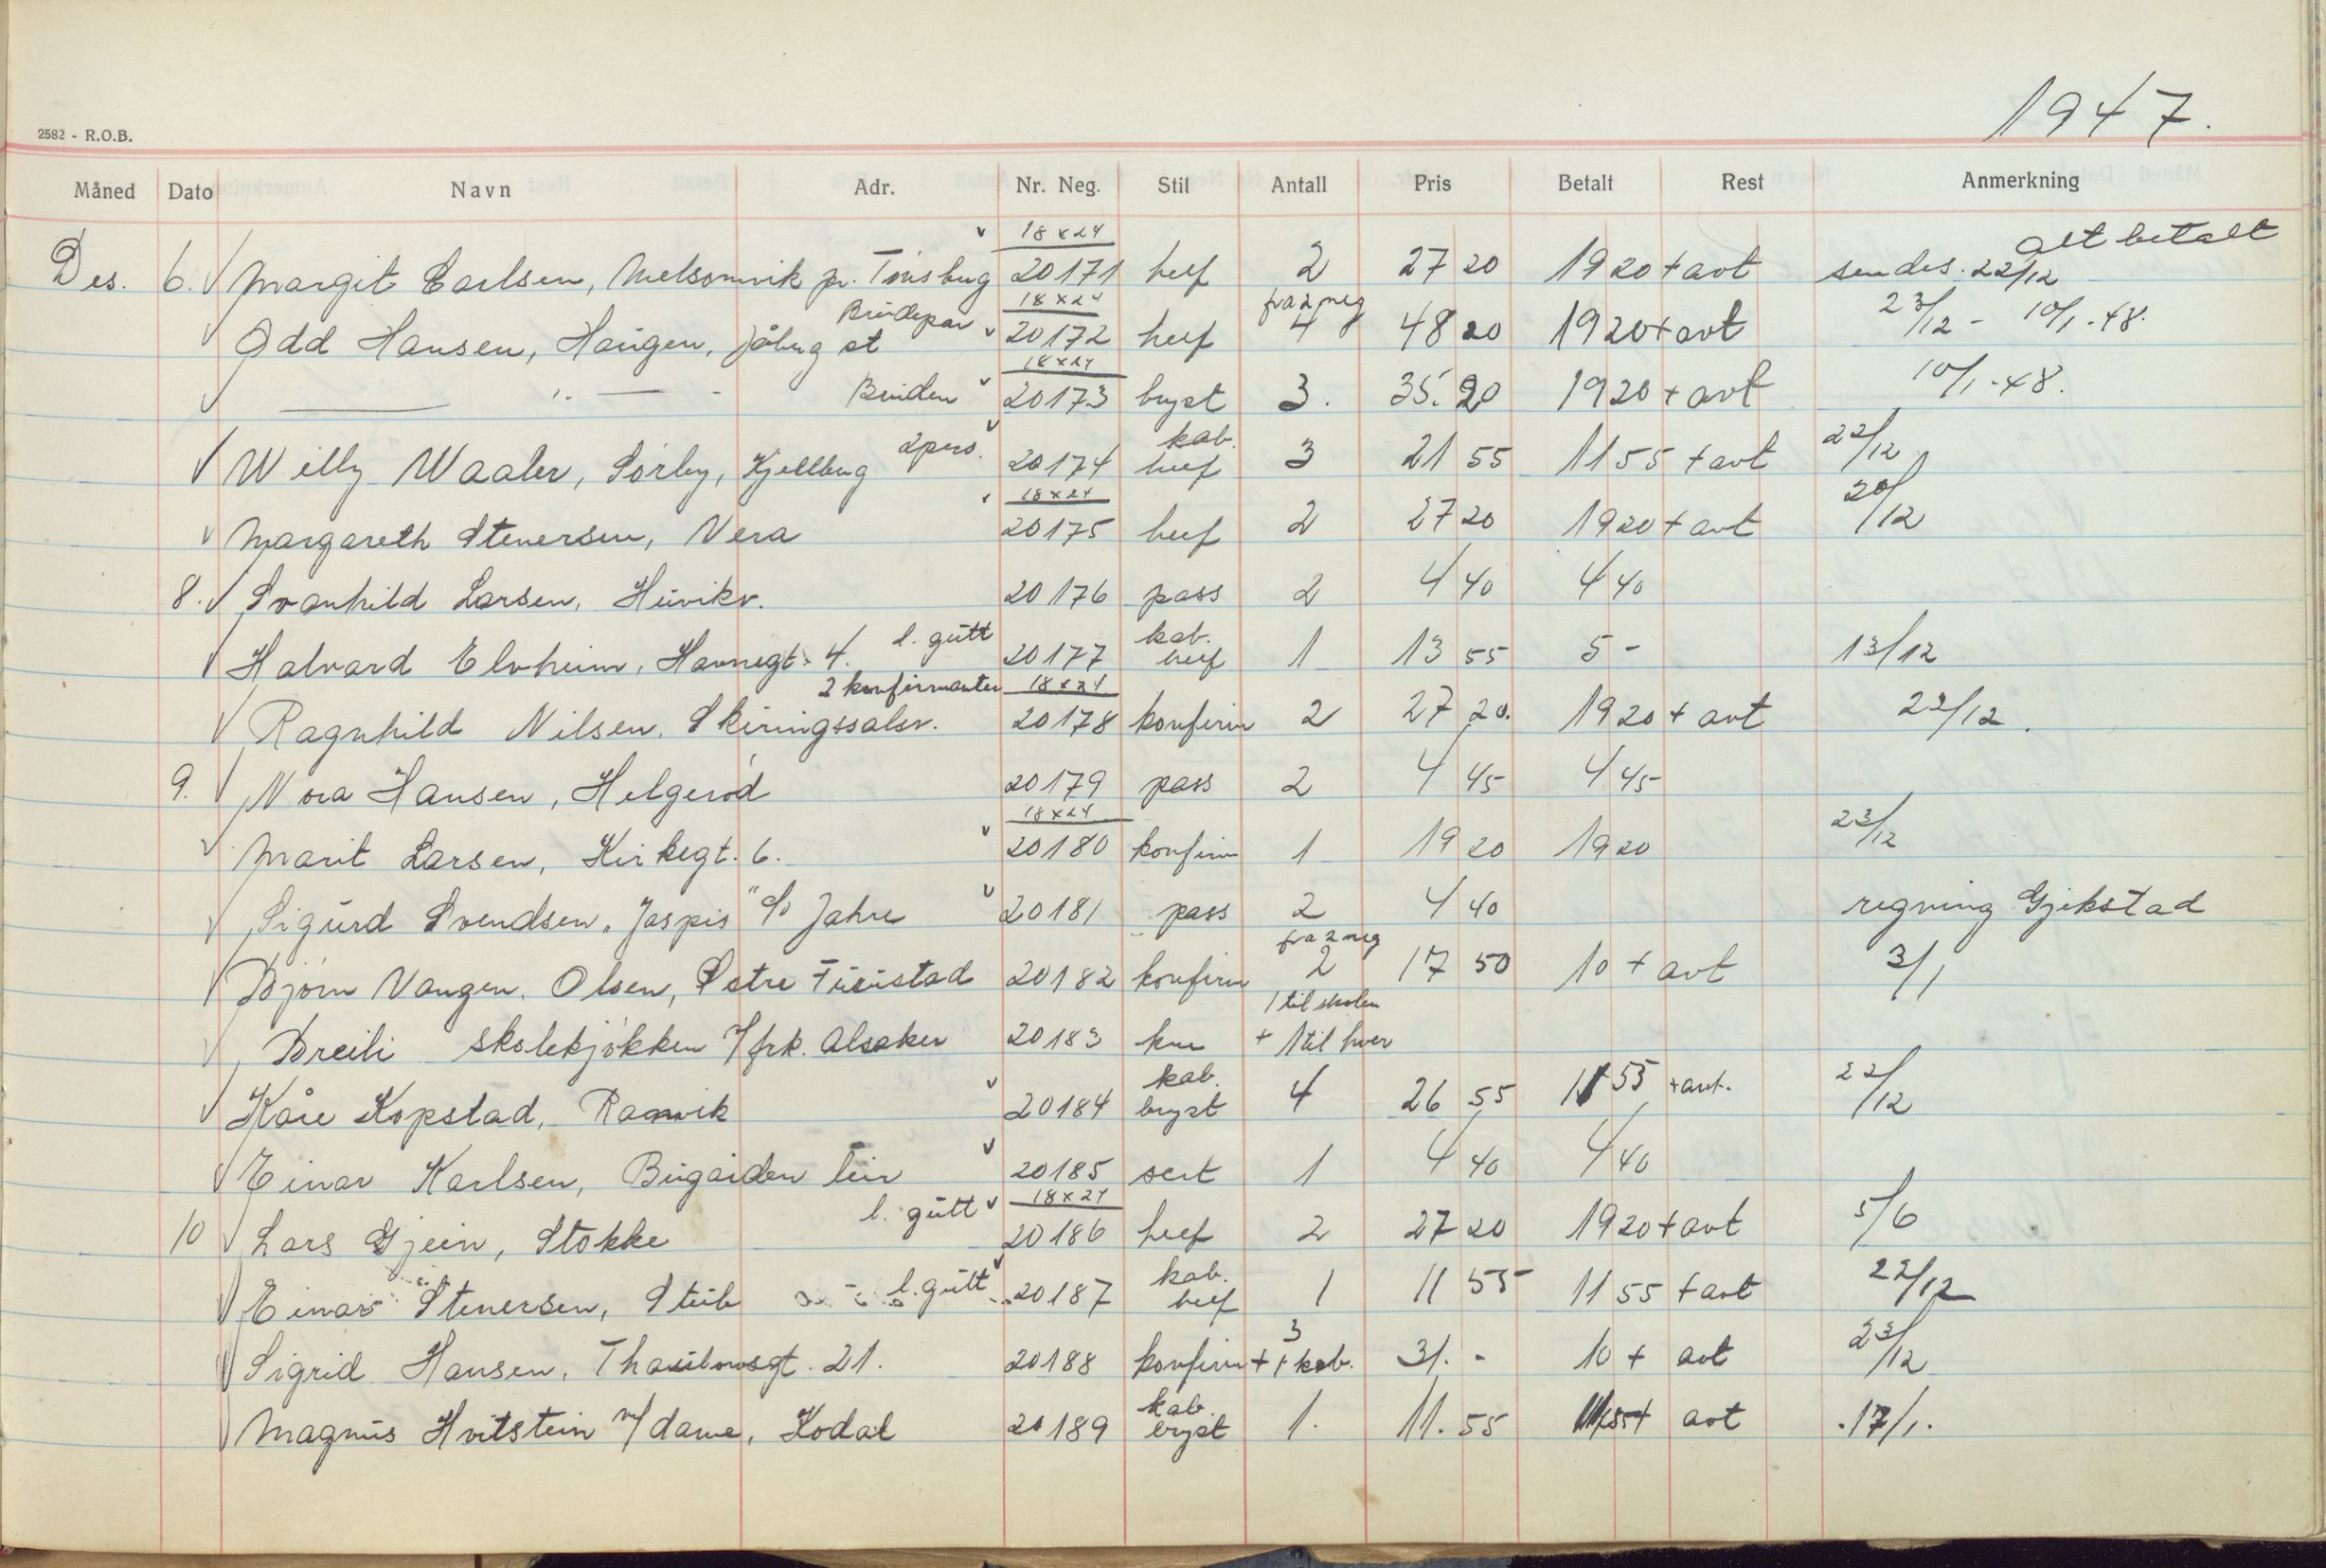 1947.
2582 - R.O.B.
Måned Dato Navn Adr. Nr. Neg. Stil Antall Pris Betalt Rest Anmerkning
18x24 alt betalt
Des. 6. Margit Carlsen, Melsomvik pr. Tønsberg 20171 helf 2 27 20 19 20 + avt sendes. 22/12
Brudepar 18x24 fra 2 neg
Odd Hansen, Haugen, Jåberg st 20172 helf 4 48 20 19 20 + avt 23/12 - 10/1 - 48.
18x24
" Bruden 20173 bryst 3. 35. 20 19 20 + avt 10/1 - 48.
2 pers. kab.
Willy Waaler, Sörby, Kjellberg 20174 helf 3 21 55 11 55 + avt 22/12
18x24
Margareth Stenersen, Vera 20175 helf 2 27 20 19 20 + avt 20/12
8. Svanhild Larsen, Huvikv. 20176 pass 2 4 40 4 40
l. gutt kab.
Halvard Elvheim, Havnegt. 4. 20177 helf 1 13 55 5 - 13/12
2 konfirmanter 18x24
Ragnhild Nilsen, Skiringssalsv. 20178 konfirm 2 27 20. 19 20 + avt 22/12.
9. Nora Hansen, Helgeröd 20179 pass 2 4 45 4 45
18x24
Marit Larsen, Kirkegt. 6. 20180 konfirm 1 19 20 19 20 23/12
Sigurd Svendsen, "Jaspis" Jahre 20181 pass 2 4 40 regning Gjekstad
fra 2 neg
Björn Vangen Olsen, Østre 20182 konfirm 2 17 50 10 + avt 3/1
1 til skolen
Breili skolekjökken v/ frk. Alsaker 20183 kne + 1 til hver
kab.
Kåre Kopstad, Ranvik 20184 bryst 4 26 55 11 55 + avt. 22/12
Einar Karlsen, Bugården leir 20185 sert 1 4 40 4 40
l. gutt 18x24
10 Lars Gjein, Stokke 20186 helf 2 27 20 19 20 + avt 5/6
l. gutt kab.
Einar Stenersen, Stub 20187 helf 1 11 55 11 55 + avt 22/12
3
Sigrid Hansen, Thaulowsgt. 21. 20188 konfirm + 1 kab. 31. - 10 + avt 23/12
kab.
Magnus Hvitstein m/ dame, Kodal 20189 bryst 1. 11. 55 11 55 + avt 17/1.